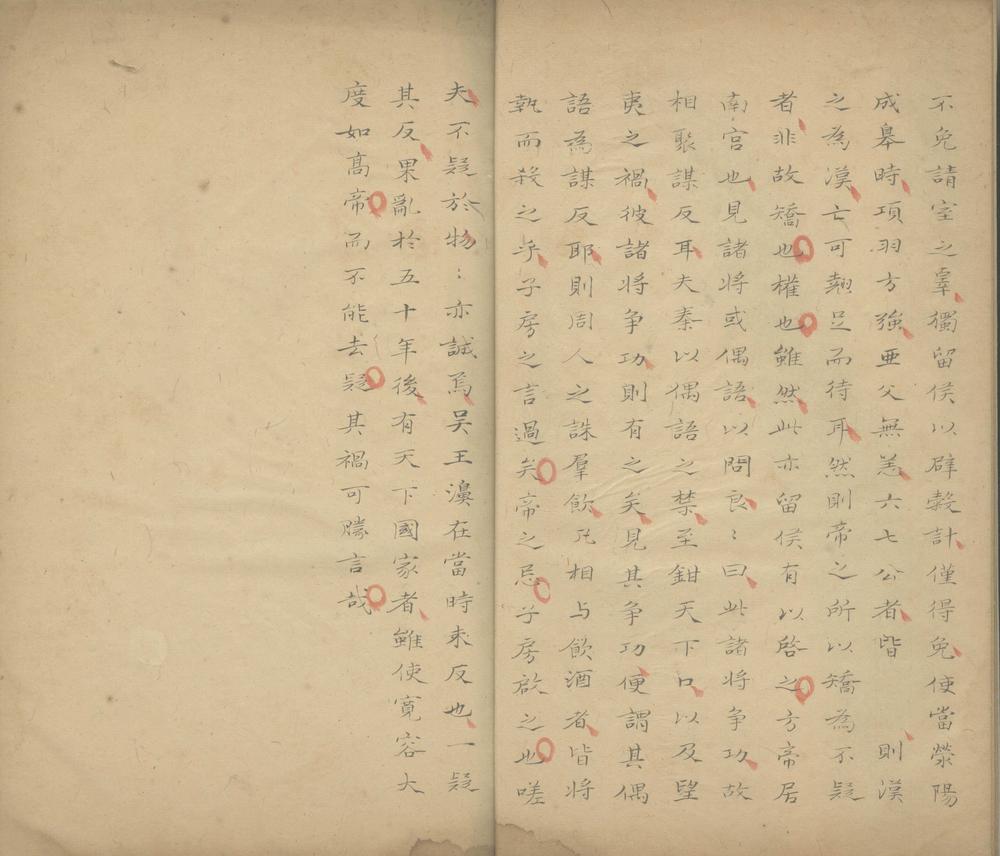 不免請室之辜獨留侯以辟穀計僅得免使當滎陽
成皋時項羽方強亜父無恙六七公者皆則漢
之為漢亡可翹足而待耳然則帝之所以矯為不疑
者非故矯也權也雖然此亦留侯有以啓之方帝居
南宮也見諸将或偶語以問良〻曰此諸将争功故
相聚謀反耳夫秦以偶語之禁至鉗天下口以及望
夷之禍彼諸将争功則有之矣見其争功便謂其偶
語為謀反耶則周人之誅羣飲凡相与飲酒者皆将
執而殺之乎子房之言過矣帝之忌子房啟之也嗟
夫不疑於物〻亦誠焉吴王濞在當時未反也一疑
其反果亂於五十年後有天下國家者雖使寛容大
度如髙帝而不能去疑其禍可勝言哉